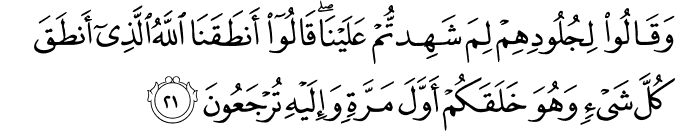 وَقَالُوا۟ لِجُلُودِهِمْ لِمَ شَهِدتُّمْ عَلَيْنَا ۖ قَالُوٓا۟ أَنطَقَنَا ٱللَّهُ ٱلَّذِىٓ أَنطَقَ
كُلَّ شَىْءٍ وَهُوَ خَلَقَكُمْ أَوَّلَ مَرَّةٍ وَإِلَيْهِ تُرْجَعُونَ ۝٢١